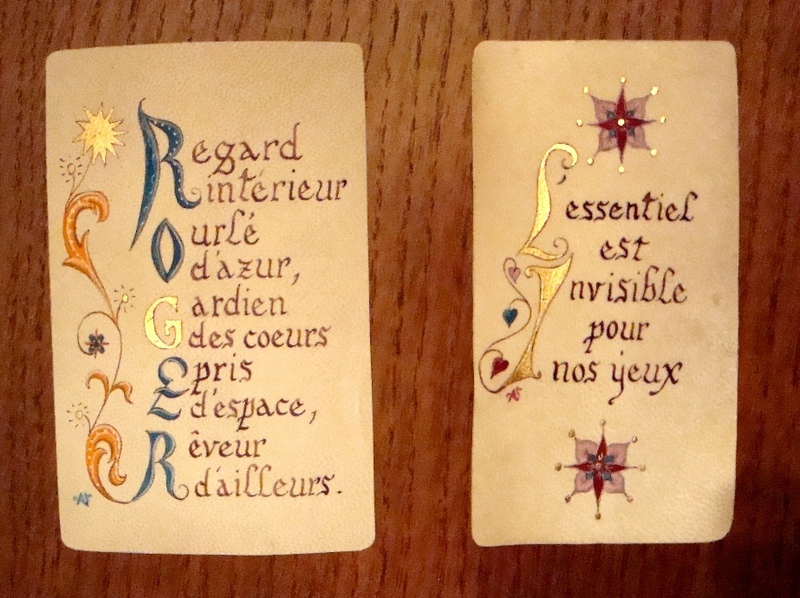 Regard
intérieur
Ourlé
d'azur,
Gardien
des coeurs
Epris
d'espace,
Rêveur
d'ailleurs.
L'essentiel
est
Invisible
pour
nos yeux